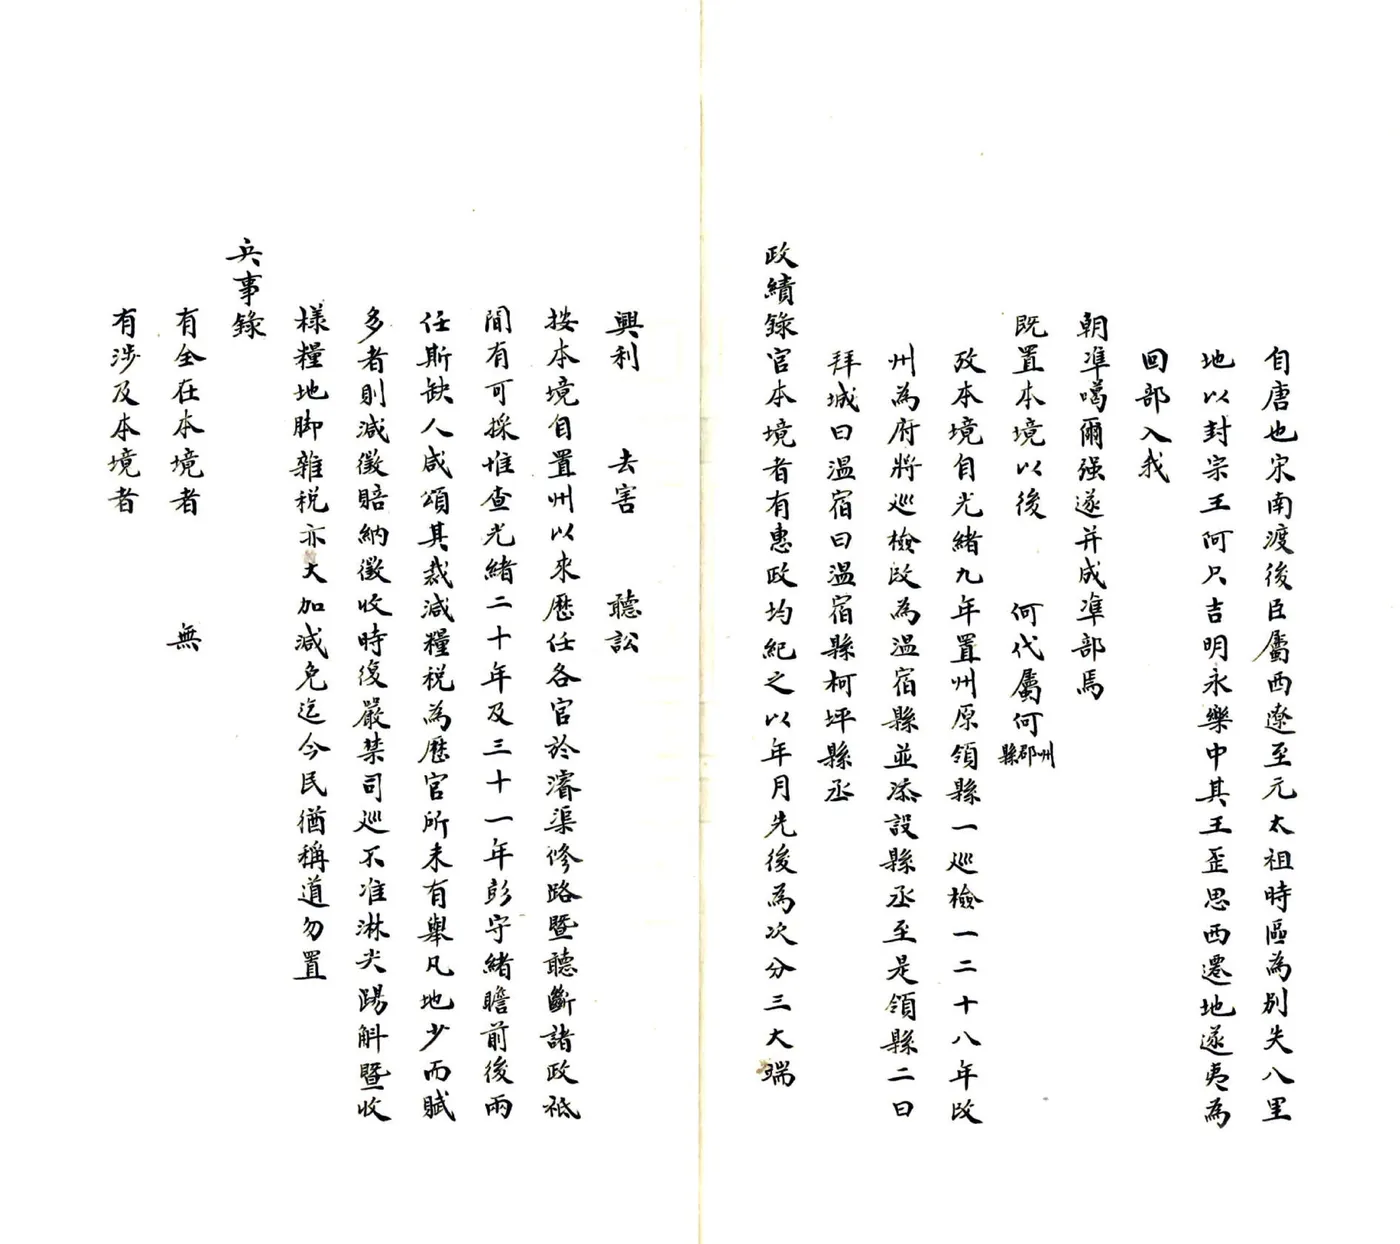 自唐也宋南渡後臣屬西遼至元太祖時區為别失八里
地以封宗王阿只吉明永樂中其王歪思西遷地遂夷為
回部入我
朝準噶爾强遂并成準部焉
既置本境以後　何代屬何州郡縣
攷本境自光緒九年置州原領縣一巡檢一二十八年改
州為府將巡檢改為溫宿縣並添設縣丞至是領縣二曰
拜城曰溫宿曰溫宿縣柯坪縣丞
政績錄官本境者有惠政均紀之以年月先後為次分三大端
興利　去害　聽訟
按本境自置州以來歷任各官於濬渠修路暨聽斷諸政祗
間有可採惟查光緒二十年及三十一年彭守緒瞻前後兩
任斯缺人咸頌其裁減糧税為歷官所未有舉凡地少而賦
多者則減徵賠納徵收時復嚴禁司巡不准淋尖踢斛暨收
樣糧地脚雜税亦大加減免迄今民猶稱道勿置
兵事錄
有全在本境者　無
有涉及本境者